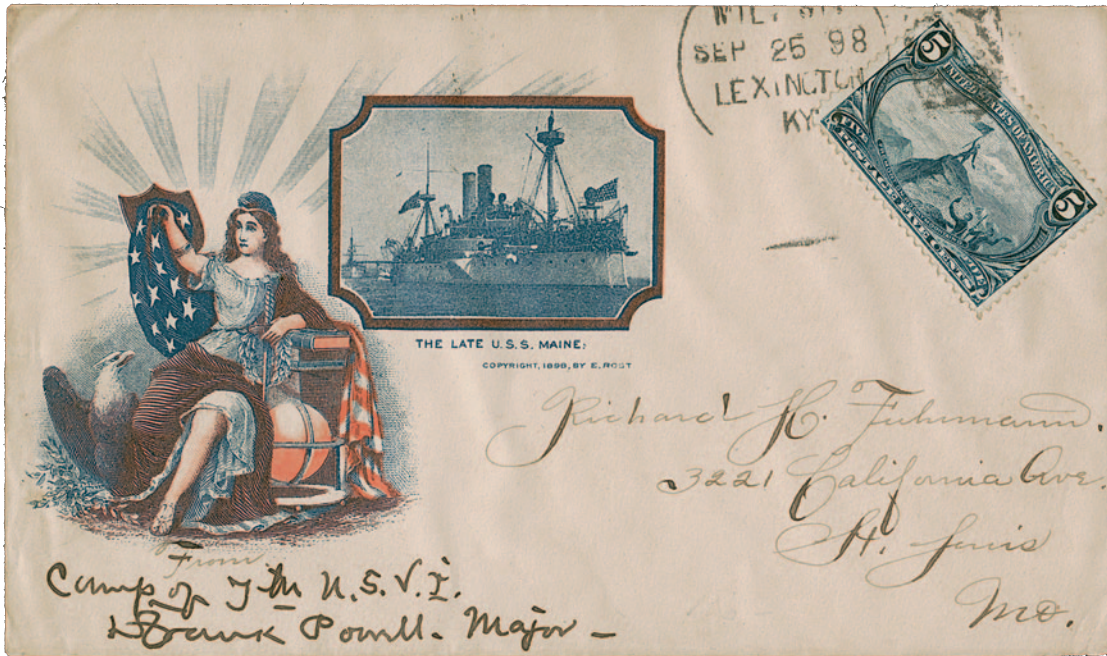 SEP 25 98
LEXINGTON
KY.
5
UNITED STATES OF AMERICA
5
THE LATE U.S.S. MAINE.
COPYRIGHT, 1898, BY E. ROST
Richard H. Fuhrmann.
3221 California Ave.
St. Louis
Mo.
From
Camp of 7th U.S.V.I.
Frank Powell. Major -